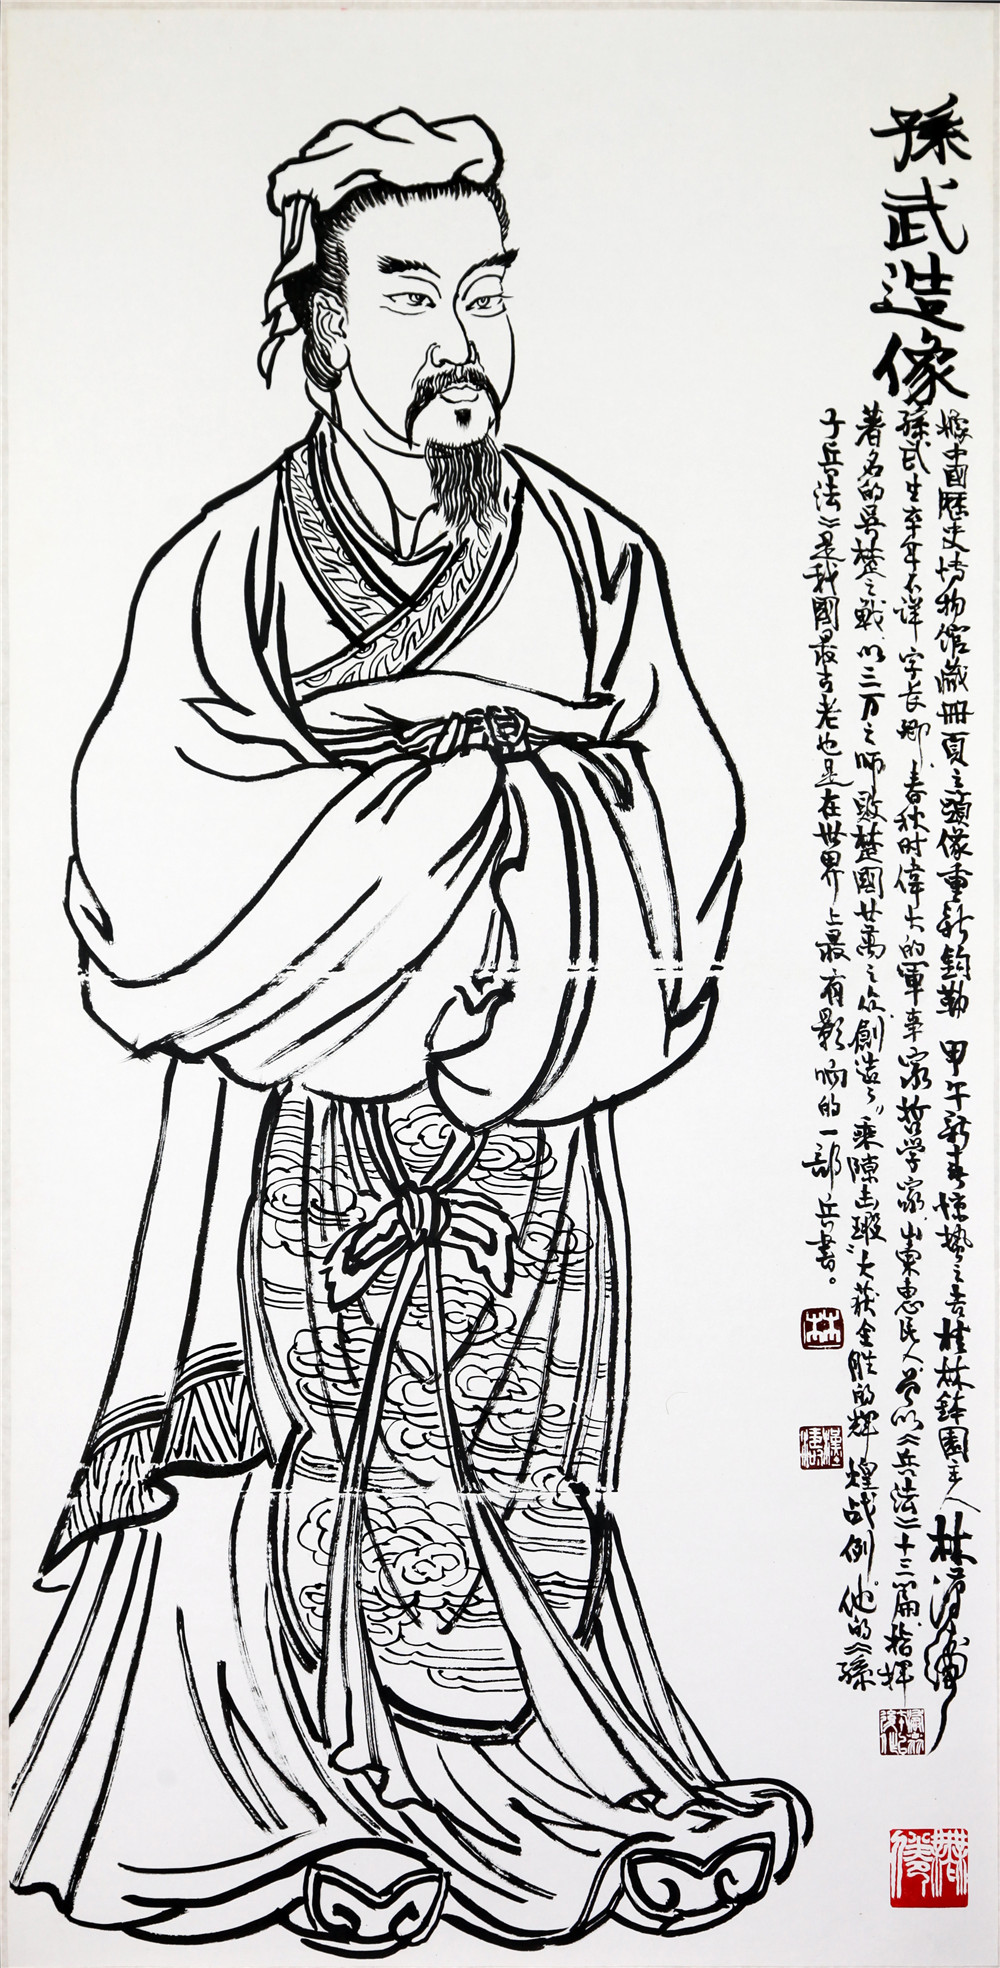 孫武造像
據中國歷史博物館藏冊頁之頭像重新鈎勒 甲午新春惊蛰之吉桂林鉢園主人林漢濤
孫武生卒年不詳字长卿春秋时偉大的軍事家哲学家山東惠民人曾以《兵法》十三篇指揮
著名的吴楚之戰以三万之师败楚國廿萬之众創造了“乘隙击瑕”大获全胜的辉煌战例他的《孫
子兵法》是我國最古老也是在世界上最有影响的一部兵書。
林